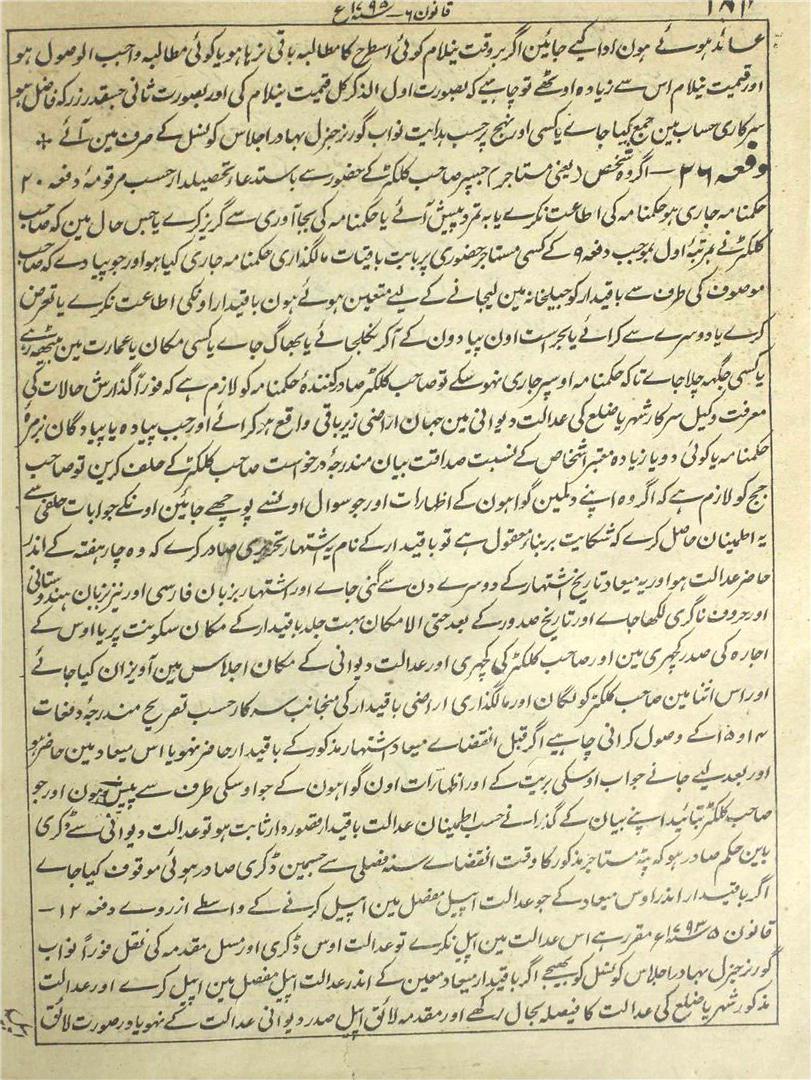 ۱۸۲
قانون ۶ - ۱۷۹۵ع
عائد ہوئے ہون ادا کیے جائین اگر بروقت نیلام کوئی اسطرح کا مطالبہ باقی نرہا ہو یا کوئی مطالبہ واجب الوصول ہو
اور قیمت نیلام اس سے زیادہ اوٹھے تو چاہیے کہ بصورت اول الذکر کل قیمت نیلام کی اور بصورت ثانی جسقدر زر کہ فاضل ہو
سرکاری حساب مین جمع کیا جاے یا کسی اور نہج پر حسب ہدایت نواب گورنر جنرل بہادر اجلاس کونسل کے صرف مین آئے +
دفعہ ۲۶ - اگر وہ شخص (یعنی مستاجر) جسپر صاحب کلکٹر کے حضور سے باستدعاء تحصیلدار حسب مرقومۂ دفعہ ۲۰
حکمنامہ جاری ہو حکمنامہ کی اطاعت نکرے یا بہ تمرد پیش آئے یا حکمنامہ کی بجا آوری سے گریز کرے یا جس حال مین کہ صاحب
کلکٹر نے مرتبۂ اول بموجب دفعہ ۹ کے کسی مستاجر حضوری پر بابت باقیات مالگذاری حکمنامہ جاری کیا ہو اور جو پیادے کہ صاحب
موصوف کی طرف سے باقیدار کو جیلخانہ مین لیجانے کے لیے متعین ہوئے ہون باقیدار اونکی اطاعت نکرے یا تعرض
کرے یا دوسرے سے کرائے یا بحراست اون پیادون کے آکر نکلجائے یا بھاگ جاے یا کسی مکان یا عمارت مین بیٹھ رہے
یا کسی جگہہ چلا جاے تاکہ حکمنامہ اوسپر جاری نہوسکے تو صاحب کلکٹر صادر کنندۂ حکمنامہ کو لازم ہے کہ فوراً گذارش حالات کی
معرفت وکیل سرکار شہر یا ضلع کی عدالت دیوانی مین جہان اراضی زیر باقی واقع ہو کرائے اور جب پیادہ یا پیادگان بزمرۂ
حکمنامہ یا کوئی دو یا زیادہ معتبر اشخاص کے نسبت صداقت بیان مندرجۂ درخواست صاحب کلکٹر کے حلف کرین تو صاحب
جج کو لازم ہے کہ اگر وہ اپنے دلمین گواہون کے اظہارات اور جو سوال اونسے پوچھے جائین اونکے جوابات حلفی سے
یہ اطمینان حاصل کرے کہ شکایت بربناء معقول ہے تو باقیدار کے نام یہ اشتہار تحریری صادر کرے کہ وہ چار ہفتہ کے اندر
حاضر عدالت ہو اور یہ میعاد تاریخ اشتہار کے دوسرے دن سے گنی جاے اور اشتہار بزبان فارسی اور نیز بزبان ہندوستانی
اور حروف ناگری لکھا جاے اور تاریخ صدور کے بعد حتی الامکان بہت جلد باقیدار کے مکان سکونت پر یا اوس کے
اجارہ کی صدر کچہری مین اور صاحب کلکٹر کی کچہری اور عدالت دیوانی کے مکان اجلاس مین آویزان کیا جائے
اور اس اثنا مین صاحب کلکٹر کو لگان اور مالگذاری اراضی باقیدار کی منجانب سرکار حسب تصریح مندرجۂ دفعات
۱۴ و ۱۵ کے وصول کرانی چاہیے اگر قبل انقضاے میعاد اشتہار مذکور کے باقیدار حاضر نہو یا اس میعاد مین حاضر ہو
اور بعد لیے جانے جواب اوسکی بریت کے اور اظہارات اون گواہون کے جو اوسکی طرف سے پیش ہون اور جو
صاحب کلکٹر بتائید اپنے بیان کے گذرانے حسب اطمینان عدالت باقیدار قصوروار ثابت ہو تو عدالت دیوانی سے ڈگری
باین حکم صادر ہو کہ پٹہ مستاجر مذکور کا وقت انقضاے سنہ فصلی سے جسمین ڈگری صادر ہوئی موقوف کیا جاے
اگر باقیدار اندر اوس میعاد کے جو عدالت اپیل مفصل مین اپیل کرنے کے واسطے ازروے دفعہ ۱۲ -
قانون ۵ ۱۷۹۳ع مقرر ہے اس عدالت مین اپیل نکرے تو عدالت اوس ڈگری اور مسل مقدمہ کی نقل فوراً نواب
گورنر جنرل بہادر اجلاس کونسل کو بھیجے اگر باقیدار میعاد معین کے اندر عدالت اپیل مفصل مین اپیل کرے اور عدالت
مذکور شہر یا ضلع کی عدالت کا فیصلہ بحال رکھے اور مقدمہ لائق اپیل صدر دیوانی عدالت کے نہو یا در صورت لائق